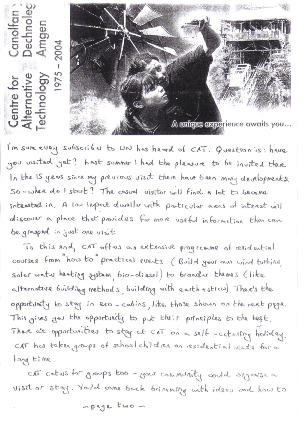 Canolfan y
Dechnoleg
Amgen
Centre for
Alternative
Technology
1975 - 2004
A unique experience awaits you...
I'm sure every subscribed to has heard of CAT. Question is: have
you visited yet? Last summer I had the pleasure to be invited there.
In the 15 years since my previous visit there have been many developments.
So - where do I start? The casual visitor will find a lot to become
interested in. A low impact dweller with particular areas of interest will
discover a place that provides far more useful information than can
be grasped in just one visit.
To this end, CAT offers an extensive programme of residential
courses from "how to" practical events (Build your own wind turbine,
solar water heating system, bio-diesel) to broader themes (like
alternative building methods, building with earth + straw). There's the
opportunity to stay in eco-cabins, like those shown on the next page.
This gives you the opportunity to put their principles to the test.
There are opportunities to stay at CAT on a self-catering holiday.
CAT has taken groups of school children on residential visits for a
long time.
CAT caters for groups too - your community could organise a
visit or stay. You'd come back brimming with ideas and how to
- page two -